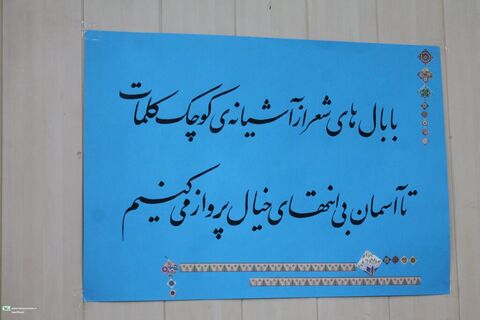 با بال های شعر از آشیانه‌ی کوچک کلمات
تا آسمان بی انتهای خیال پرواز می کنیم